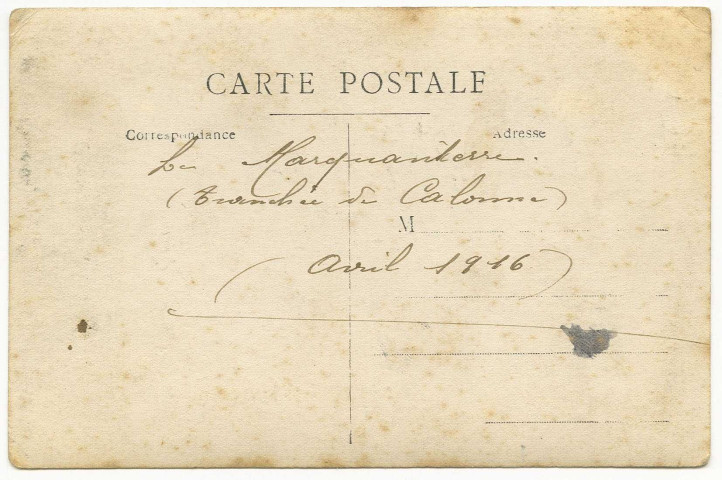 CARTE POSTALE
Correspondance Adresse
Le Marquanterre.
(Tranchée de Calonne)
M
(Avril 1916)